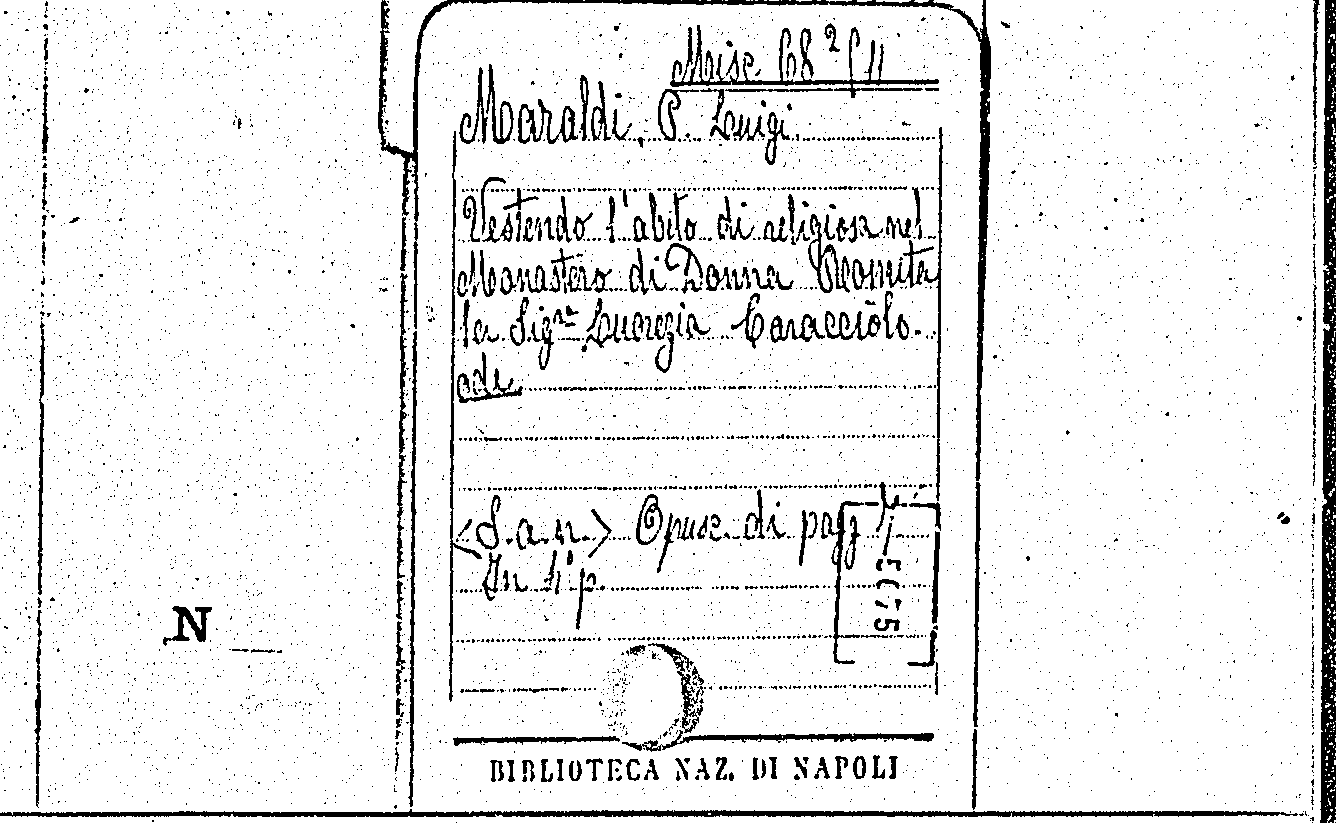 Misc. 68² (11
Maraldi, P. Luigi.
Vestendo l'abito di religiosa nel
Monastero di Donna Romita
la Sigra Lucrezia Caracciolo.
ode.
<S. a. n.> Opusc. di pagg
In 4° p.
N
BIBLIOTECA NAZ. DI NAPOLI